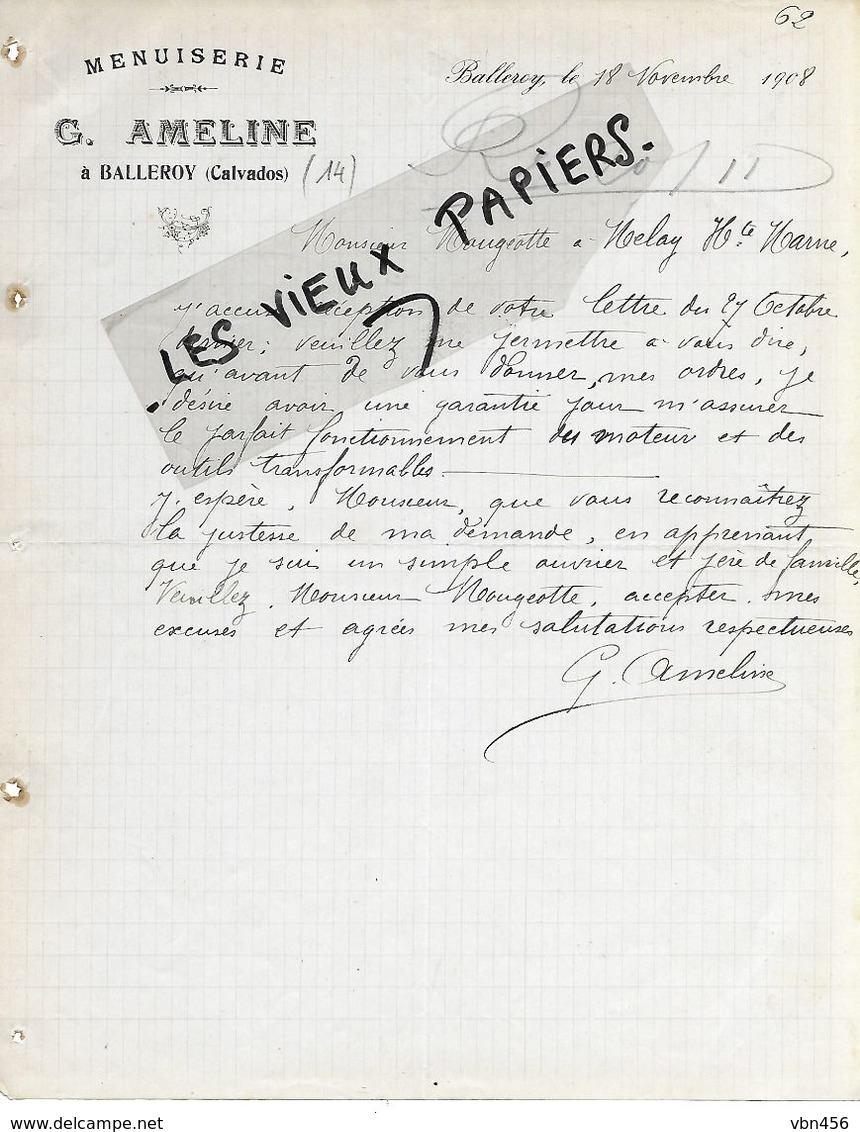 62
MENUISERIE
Balleroy, le 18 Novembre 1908
G. AMELINE
à BALLEROY (Calvados) (14)
LES VIEUX PAPIERS.
Monsieur Mougeotte a Melay Hte Marne,
J'accuse réception de votre lettre du 27 Octobre
dernier; veuillez me permettre a vous dire,
qu'avant de vous donner mes ordres, je
désire avoir une garantie pour m'assurer
le parfait fonctionnement du moteur et des
outils transformables.
J'espère, Monsieur, que vous reconnaîtrez
la justesse de ma demande, en apprenant
que je suis un simple ouvrier et père de famille,
Veuillez, Monsieur Mougeotte, accepter mes
excuses et agréés mes salutations respectueuses
G. Ameline
www.delcampe.net
vbn456